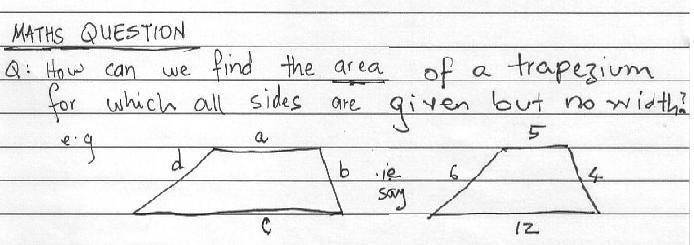 MATHS QUESTION
Q: How can we find the area of a trapezium
for which all sides are given but no width?
e.g a d b c ie say 5 6 4 12